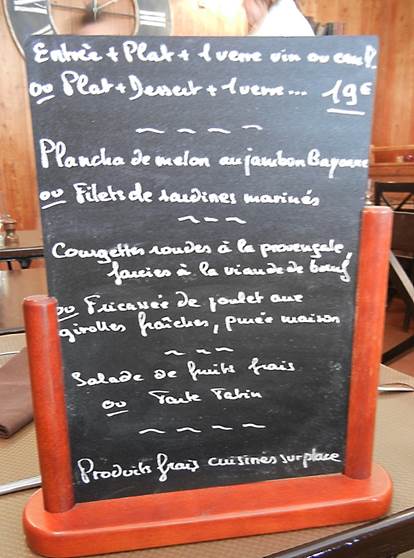 Entrée + Plat + 1 verre vin ou
ou Plat + Dessert + 1 verre... 19€
Plancha de melon au jambon Bayonne
ou Filets de sardines marinés
Courgettes rondes à la provençale,
farcies à la viande de bœuf
ou Fricassée de poulet aux
girolles fraîches, purée maison
Salade de fruits frais
ou Tarte Tatin
Produits frais cuisinés sur place